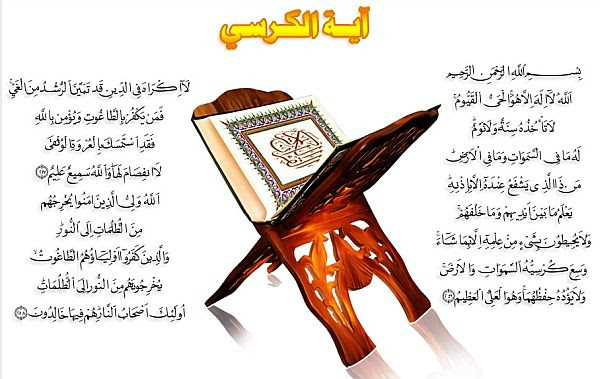 آية الكرسي
بِسْمِ اللَّهِ الرَّحْمَنِ الرَّحِيمِ
اللَّهُ لَا إِلَهَ إِلَّا هُوَ الْحَيُّ الْقَيُّومُ
لَا تَأْخُذُهُ سِنَةٌ وَلَا نَوْمٌ
لَهُ مَا فِي السَّمَوَاتِ وَمَا فِي الْأَرْضِ
مَن ذَا الَّذِي يَشْفَعُ عِنْدَهُ إِلَّا بِإِذْنِهِ
يَعْلَمُ مَا بَيْنَ أَيْدِيهِمْ وَمَا خَلْفَهُمْ
وَلَا يُحِيطُونَ بِشَيْءٍ مِنْ عِلْمِهِ إِلَّا بِمَا شَاءَ
وَسِعَ كُرْسِيُّهُ السَّمَوَاتِ وَالْأَرْضَ
وَلَا يَؤُدُهُ حِفْظُهُمَا وَهُوَ الْعَلِيُّ الْعَظِيمُ ﴿٢٥٥﴾
لَا إِكْرَاهَ فِي الدِّينِ قَد تَبَيَّنَ الرُّشْدُ مِنَ الْغَيِّ
فَمَن يَكْفُرْ بِالطَّاغُوتِ وَيُؤْمِن بِاللَّهِ
فَقَدِ اسْتَمْسَكَ بِالْعُرْوَةِ الْوُثْقَى
لَا انفِصَامَ لَهَا وَاللَّهُ سَمِيعٌ عَلِيمٌ ﴿٢٥٦﴾
اللَّهُ وَلِيُّ الَّذِينَ آمَنُوا يُخْرِجُهُم
مِنَ الظُّلُمَاتِ إِلَى النُّورِ
وَالَّذِينَ كَفَرُوا أَوْلِيَاؤُهُمُ الطَّاغُوتُ
يُخْرِجُونَهُم مِنَ النُّورِ إِلَى الظُّلُمَاتِ
أُولَئِكَ أَصْحَابُ النَّارِ هُمْ فِيهَا خَالِدُونَ ﴿٢٥٧﴾